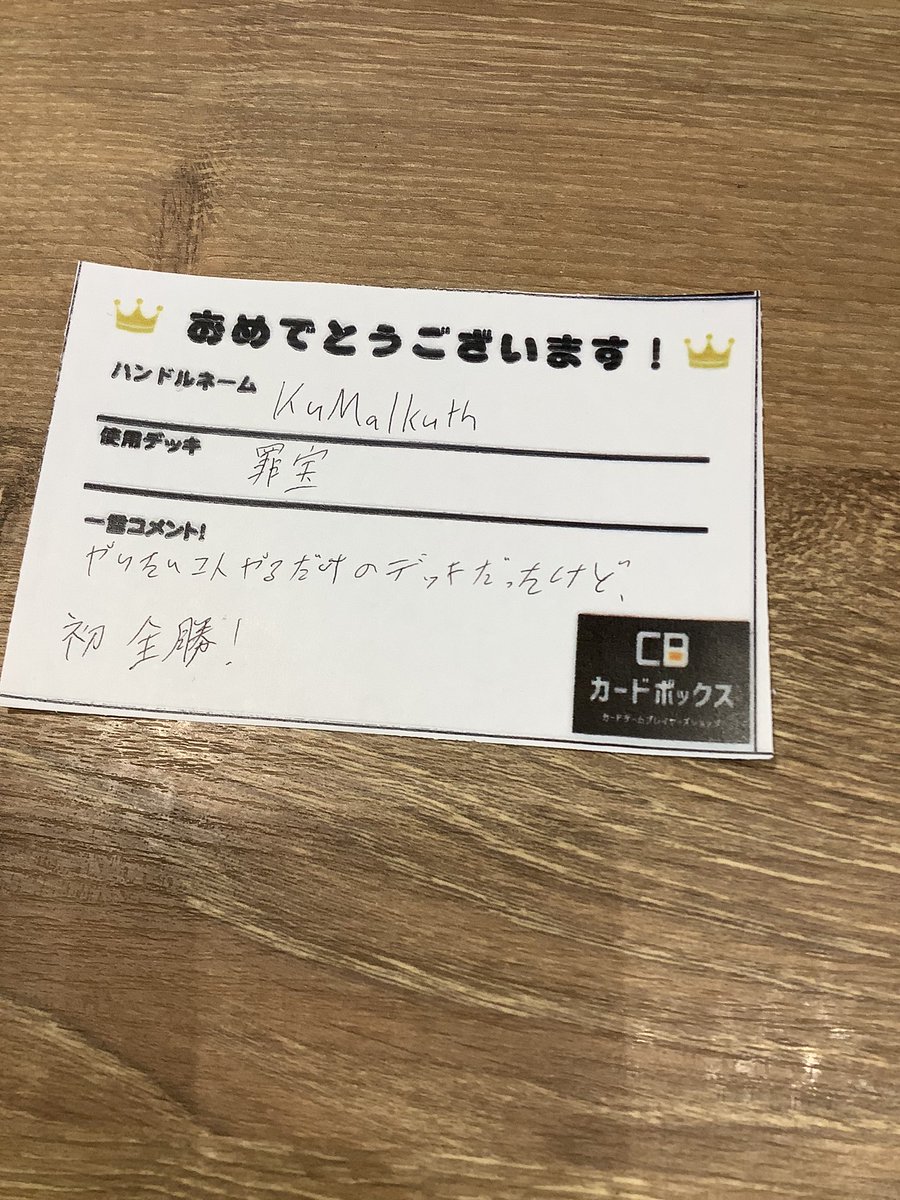 おめでとうございます！
ハンドルネーム KuMalkuth
使用デッキ 罪宝
一言コメント!
やりたいコトやるだけのデッキだったけど、
初 全勝!
CB
カードボックス
カードゲームプレイヤーズショップ